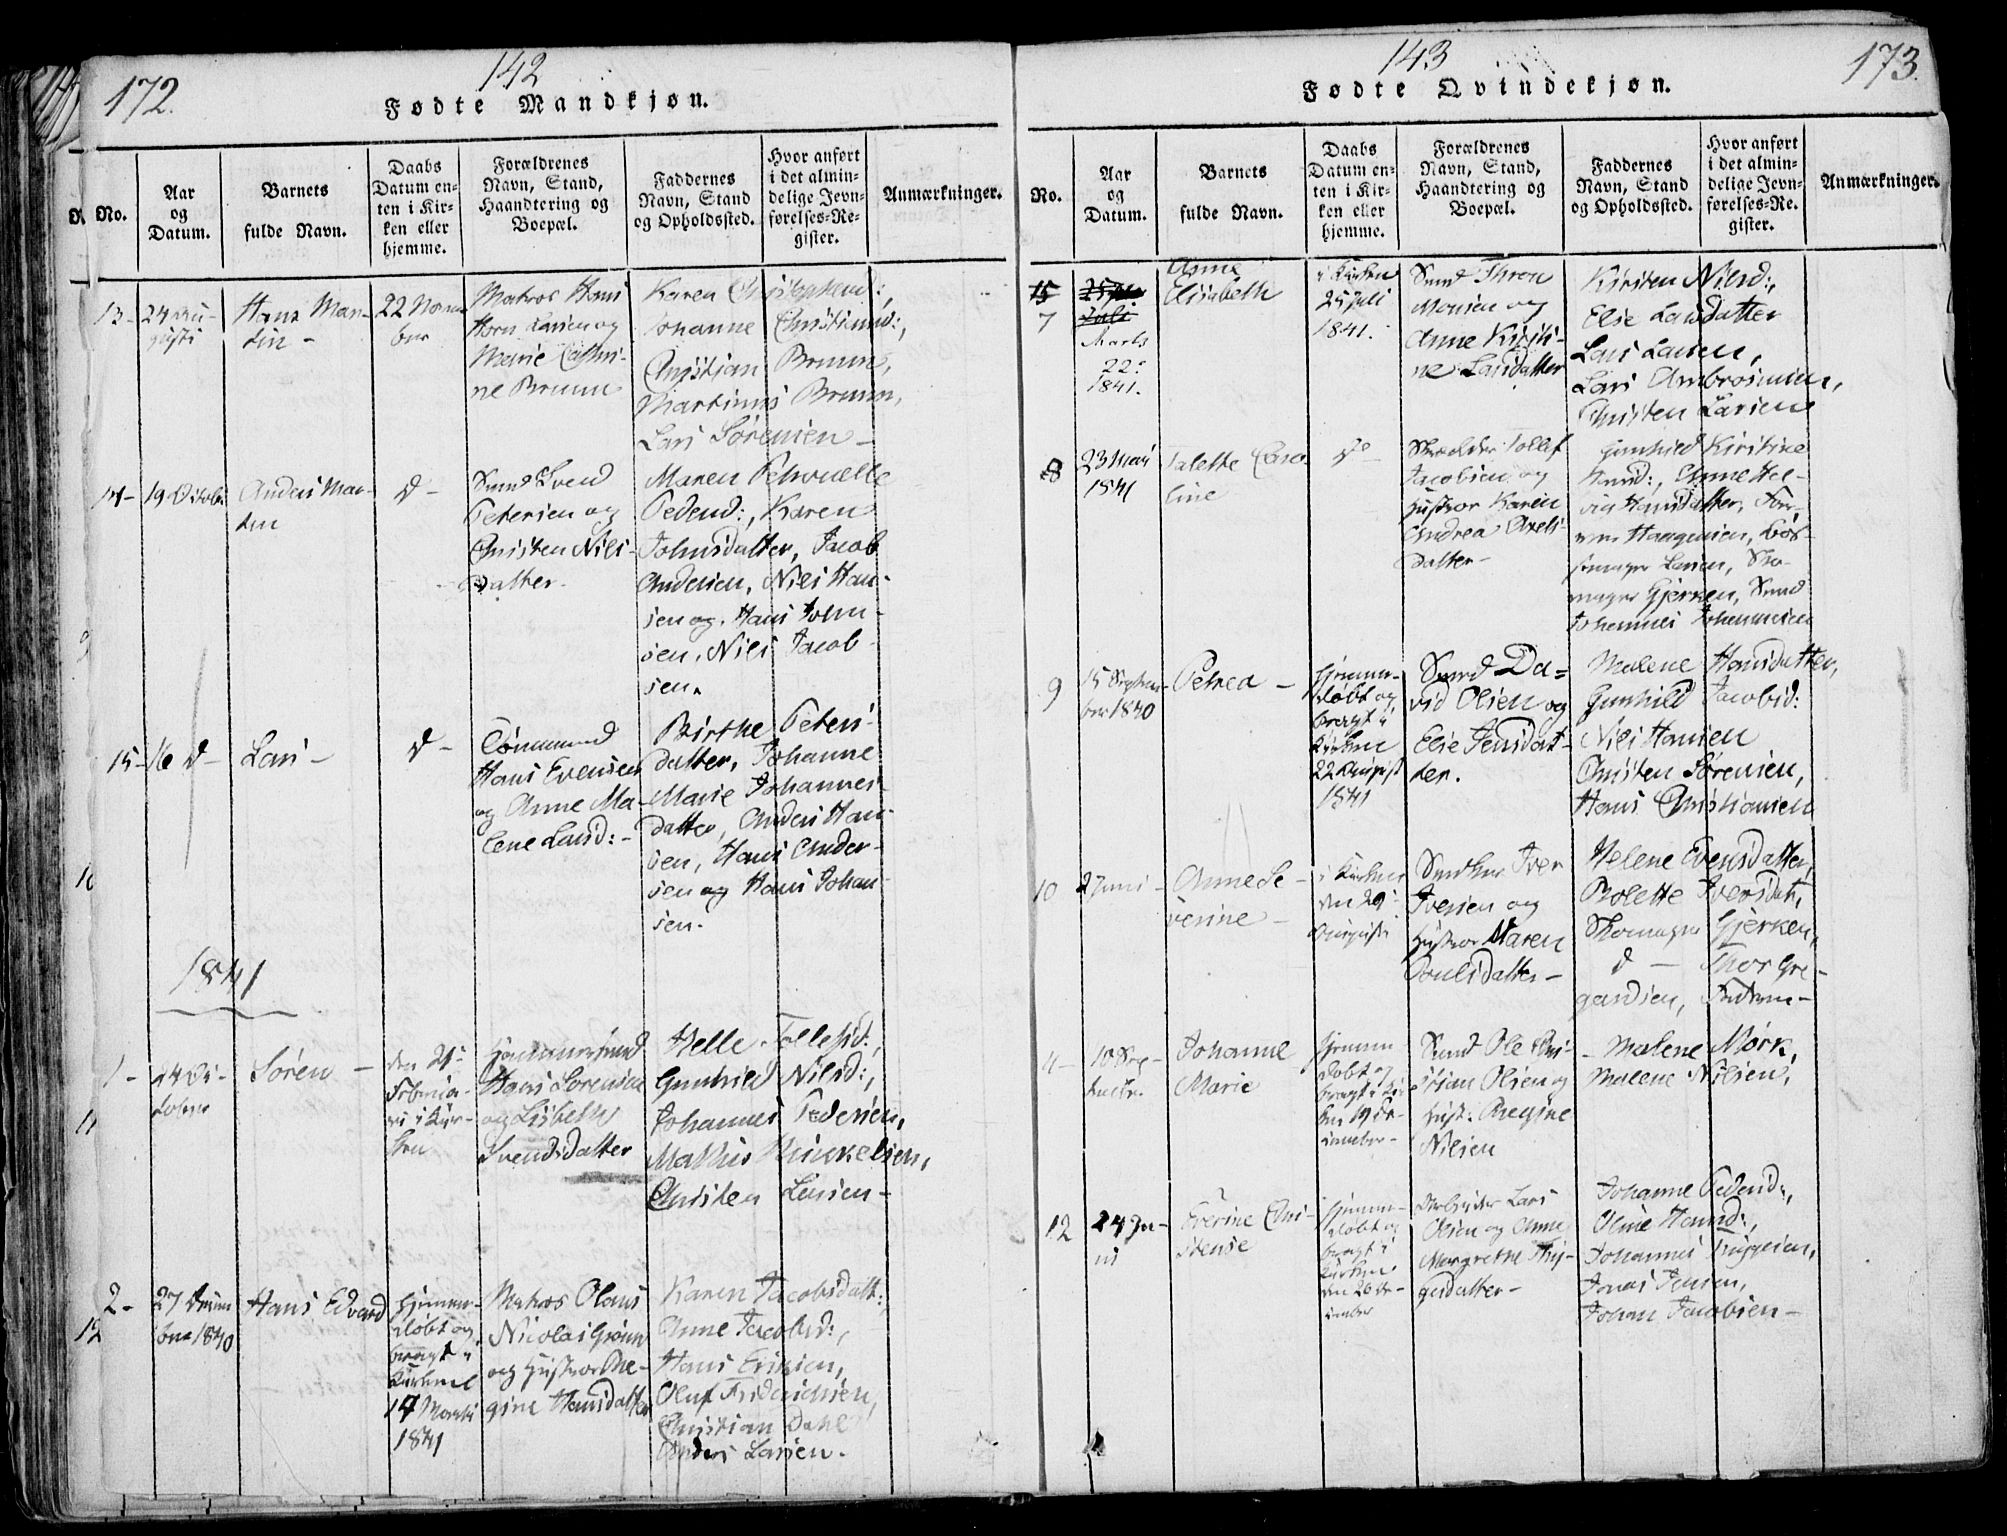 172.
142
Fødte Mandkjøn.
No.
Aar
og
Datum.
Barnets
fulde Navn.
Daabs
Datum en-
ten i Kir-
ken eller
hjemme.
Forældrenes
Navn, Stand,
Haandtering og
Boepæl.
Faddernes
Navn, Stand
og Opholdssted.
Hvor anført
i det almin-
delige Jevn-
førelses-Re-
gister.
Anmærkninger.
13-
24 Au-
gusti
Hans Mar-
tin -
22 Novem
ber
Matros Hans
Horn Larsen og
Marie Cathri-
ne Bruun
Karen Christophersd:,
Johanne Christiansd:,
Christian Bruun,
Martinus Bruun,
Lars Sørensen -
14-
19 Octobr
Anders Mar-
tin
d -
Svend
Petersen og
Christen Niels-
datter -
Maren Petronelle
Pedersd:, Karen
Johnsdatter, Jacob
Andersen, Niels Han-
sen og Hans John-
sen, Niels Jacob-
sen.
15-
16 d -
Lars -
d -
Tømmermd
Hans Evensen
og Anne Ma-
lene Larsd: -
Birthe Peters-
datter, Johanne
Marie Johannes-
datter, Anders Han-
sen, Hans Ander-
sen og Hans Johan-
sen.
1841
1 -
24 Oc-
tober
Søren -
den 21
Februa-
ri i Kir-
ken
Hans Sørensen
og Lisbeth
Svendsdatter
Helle Tollefsd:,
Gunhild Nilsd:,
Johannes Pedersen,
Mathis Hinkelsen,
Christen Larsen -
2 -
27 Decem
ber 1840
Hans Edvard
hjemme-
døbt og
bragt i
Kirken
14 Marts
1841
Matros Olaus
Nicolai Grønn
og Hustroe Re-
gine Hansdatter
Karen Jacobsdatt:,
Anne Jacobsd:,
Hans Ericsen,
Oluf Fridrichsen,
Christian Dahl
Anders Larsen.
143
173.
Fødte Qvindekjøn.
No.
Aar
og
Datum.
Barnets
fulde Navn.
Daabs
Datum en-
ten i Kir-
ken eller
hjemme.
Forældrenes
Navn, Stand,
Haandtering og
Boepæl.
Faddernes
Navn, Stand
og Opholdssted.
Hvor anført
i det almin-
delige Jevn-
førelses-Re-
gister.
Anmærkninger.
15
7
25
Juli
Marts
22
1841.
Anne
Elisabeth
i Kirken
25 Juli
1841.
Thron
Monsen og
Anne Kirsti-
ne Larsdatter
Kirsten Nilsd:,
Else Larsdatter
Lars Larsen,
Lars Ambrosiusen,
Christen Larsen
8
23 Mai
1841
Talette Caro-
line
do -
Tollef
Jacobsen og
Hustroe Karen
Andrea Axels-
datter -
Gunhild Kirstine
Hansd:, Anne Hel-
via Hansdatter,
Haagensen,
Larsen, Sko-
mager Gjerken,
Johannes Johannesen
9
15 Septem-
ber 1840
Petrea -
hjemme-
døbt og
bragt i
Kirken
22 August
1841
Da-
vid Olsen og
Elise Jensdat-
ter.
Malene Hansdatter,
Gunhild Jacobsd:
Nils Hansen
Christen Sørensen,
Hans Christiansen
10
2 Juni -
Anne Se-
verine -
i Kirken
den 29
Augusti
Iver
Iversen og
Hustroe Maren
Poulsdatter -
Helene Evensdatter,
Bolette Iversdat,
Skomager Gjerken,
d - Thor Gre-
gersen,
11 -
10 Sep-
tembr.
Johanne
Marie
hjemme
døbt og
bragt i Kir
ken 19 De-
cember -
Ole Chri-
stian Olsen og
Hust: Regine
Nilsen
- Malene Mørk,
Malene Nilsen,
12
24 Ju-
ni
Everine Chri-
stense
hjemme-
døbt og
bragt i
Kirken
den 26 De-
cember
Arbeider Lars
Olsen og Anne
Margrethe Thy-
gesdatter -
Johanne Pedersd:,
Oline Hansd:,
Johannes Thygesen,
Jonas Jensen,
Johan Jacobsen -